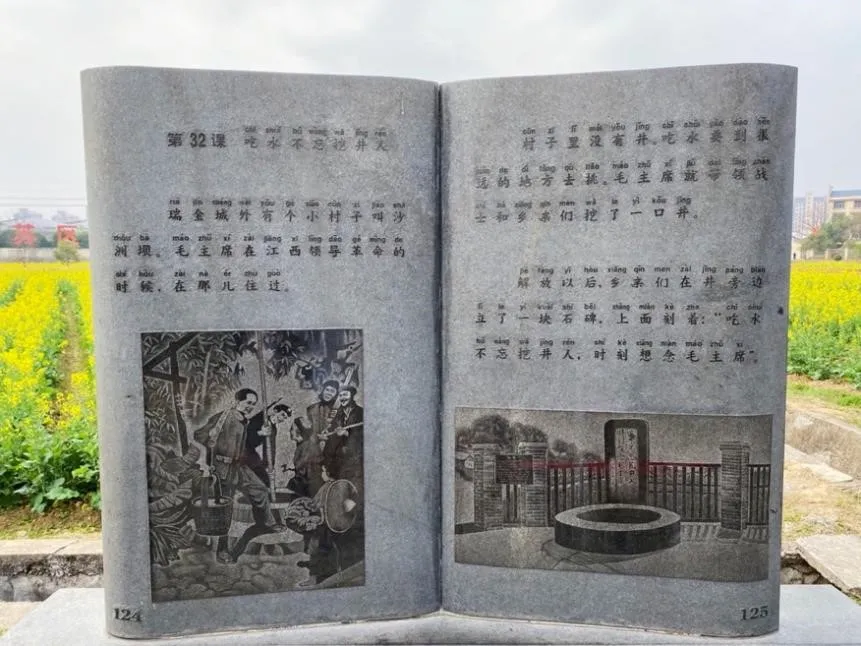 chī shuǐ bú wàng wā jǐng rén
第32课 吃水不忘挖井人
ruì jīn chéng wài yǒu gè xiǎo cūn zi jiào shā
瑞金城外有个小村子叫沙
zhōu bà máo zhǔ xí zài jiāng xī lǐng dǎo gé mìng de
洲坝。毛主席在江西领导革命的
shí hòu zài nà ér zhù guò
时候，在那儿住过。
124
cūn zi lǐ méi yǒu jǐng chī shuǐ yào dào hěn
村子里没有井，吃水要到很
yuǎn de dì fāng qù tiāo máo zhǔ xí jiù dài lǐng zhàn
远的地方去挑。毛主席就带领战
shì hé xiāng qīn men wā le yì kǒu jǐng
士和乡亲们挖了一口井。
jiě fàng yǐ hòu xiāng qīn men zài jǐng páng biān
解放以后，乡亲们在井旁边
lì le yí kuài shí bēi shàng miàn kè zhe chī shuǐ
立了一块石碑，上面刻着：“吃水
bú wàng wā jǐng rén shí kè xiǎng niàn máo zhǔ xí
不忘挖井人，时刻想念毛主席”。
125